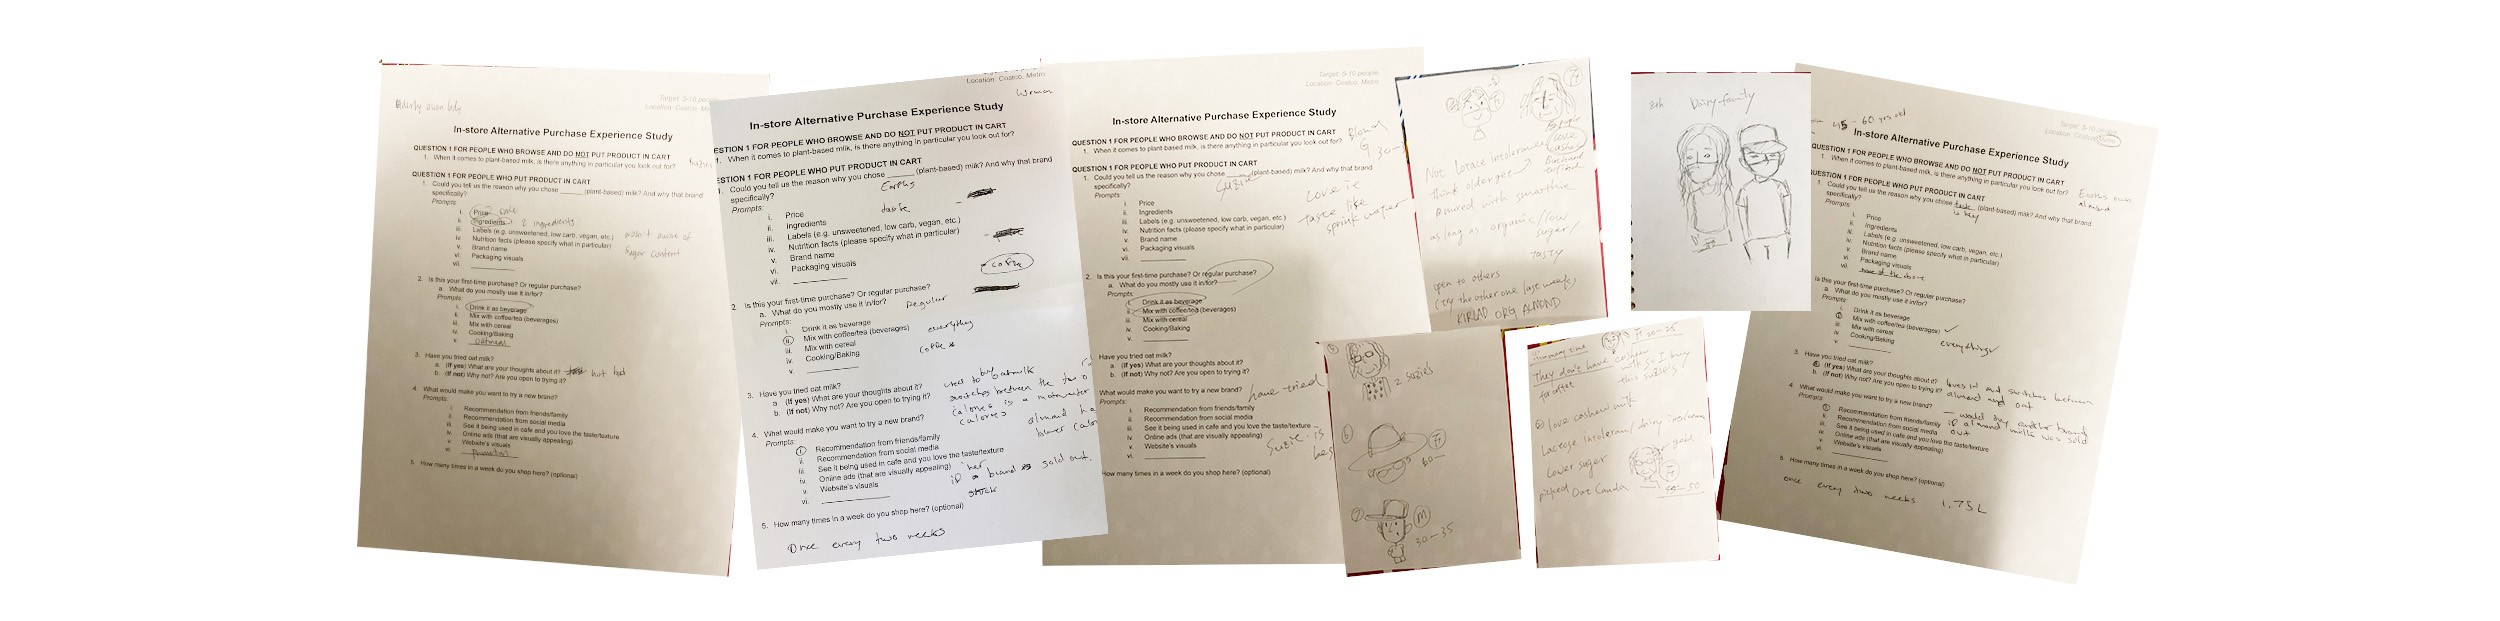 Target: 5-10 people
Location: Costco, Metro
In-store Alternative Purchase Experience Study
QUESTION 1 FOR PEOPLE WHO BROWSE AND DO NOT PUT PRODUCT IN CART
1. When it comes to plant-based milk, is there anything in particular you look out for?
QUESTION 1 FOR PEOPLE WHO PUT PRODUCT IN CART
1. Could you tell us the reason why you chose ______ (plant-based) milk? And why that brand
specifically?
Prompts:
i. Price sale
ii. Ingredients 2 ingredients
iii. Labels (e.g. unsweetened, low carb, vegan, etc.)
wasn't aware of
iv. Nutrition facts (please specify what in particular)
sugar content
v. Brand name
vi. Packaging visuals
vii. ______
2. Is this your first-time purchase? Or regular purchase?
a. What do you mostly use it in/for?
Prompts:
i. Drink it as beverage
ii. Mix with coffee/tea (beverages)
iii. Mix with cereal
iv. Cooking/Baking
v. oatmeal
3. Have you tried oat milk?
a. (If yes) What are your thoughts about it? not bad
b. (If not) Why not? Are you open to trying it?
4. What would make you want to try a new brand?
Prompts:
i. Recommendation from friends/family
ii. Recommendation from social media
iii. See it being used in cafe and you love the taste/texture
iv. Online ads (that are visually appealing)
v. Website's visuals
vi. promotion
5. How many times in a week do you shop here? (optional)
Location: Costco, Metro
Woman
In-store Alternative Purchase Experience Study
ESTION 1 FOR PEOPLE WHO BROWSE AND DO NOT PUT PRODUCT IN CART
1. When it comes to plant-based milk, is there anything in particular you look out for?
ESTION 1 FOR PEOPLE WHO PUT PRODUCT IN CART
. Could you tell us the reason why you chose ______ (plant-based) milk? And why that brand
specifically?
Earths
Prompts:
i. Price taste
ii. Ingredients
iii. Labels (e.g. unsweetened, low carb, vegan, etc.)
iv. Nutrition facts (please specify what in particular)
v. Brand name
vi. Packaging visuals
coffee
vii. ______
2 Is this your first-time purchase? Or regular purchase?
a. What do you mostly use it in/for? Regular
Prompts:
i. Drink it as beverage
ii. Mix with coffee/tea (beverages) everything
iii. Mix with cereal
iv. Cooking/Baking coffee
v. ______
3. Have you tried oat milk? used to buy oatmilk
a. (If yes) What are your thoughts about it? switches between the two
b. (If not) Why not? Are you open to trying it? calories is a motivator
4. What would make you want to try a new brand? calories almond ha
Prompts:
lower calor
i. Recommendation from friends/family
ii. Recommendation from social media
iii. See it being used in cafe and you love the taste/texture
iv. Online ads (that are visually appealing) her
v. Website's visuals if a brand sold out.
vi. ______ stock
5. How many times in a week do you shop here? (optional)
Once every two weeks
Target: 5-10 people
Location: Costco, Metro
In-store Alternative Purchase Experience Study
QUESTION 1 FOR PEOPLE WHO BROWSE AND DO NOT PUT PRODUCT IN CART
Blond
1. When it comes to plant-based milk, is there anything in particular you look out for?
G 30-
QUESTION 1 FOR PEOPLE WHO PUT PRODUCT IN CART
1. Could you tell us the reason why you chose ______ (plant-based) milk? And why that brand
specifically? Suzie
Prompts:
i. Price
Love it
ii. Ingredients
taste like
iii. Labels (e.g. unsweetened, low carb, vegan, etc.)
iv. Nutrition facts (please specify what in particular)
v. Brand name
vi. Packaging visuals
vii. ______
2. Is this your first-time purchase? Or regular purchase?
a. What do you mostly use it in/for?
Prompts:
i. Drink it as beverage
ii. Mix with coffee/tea (beverages)
iii. Mix with cereal
iv. Cooking/Baking
Have you tried oat milk?
a. (If yes) What are your thoughts about it?
b. (If not) Why not? Are you open to trying it?
What would make you want to try a new brand? have tried
Prompts:
i. Recommendation from friends/family
ii. Recommendation from social media
iii. See it being used in cafe and you love the taste/texture
iv. Online ads (that are visually appealing) Suzie is
v. Website's visuals bes
vi. ______
How many times in a week do you shop here? (optional)
F
Love
cashew
Not lactose intolerance
think older get
mixed with smoothie
as long as organic/low
sugar/
tasty
open to others
(try the other one last week)
ORG ALMOND
2 suzie's
6
F
60-
7
M
30-35
F 20-25
They don't have cashew
milk so I buy
this suzie's!
for coffee
love cashew milk
Lactose intolerant/ dairy
lower suger
gold
picked
F
45-50
8th Dairy family
45-60 yrs old
Target: 5-10 people
Location: Costco, Metro
In-store Alternative Purchase Experience Study
QUESTION 1 FOR PEOPLE WHO BROWSE AND DO NOT PUT PRODUCT IN CART
1. When it comes to plant-based milk, is there anything in particular you look out for?
Earths own
almond
QUESTION 1 FOR PEOPLE WHO PUT PRODUCT IN CART
1. Could you tell us the reason why you chose taste (plant-based) milk? And why that brand
specifically? is key
Prompts:
i. Price
ii. Ingredients
iii. Labels (e.g. unsweetened, low carb, vegan, etc.)
iv. Nutrition facts (please specify what in particular)
v. Brand name
vi. Packaging visuals
vii. none of the above
Is this your first-time purchase? Or regular purchase?
a. What do you mostly use it in/for?
Prompts:
i. Drink it as beverage
ii. Mix with coffee/tea (beverages)
iii. Mix with cereal everything
iv. Cooking/Baking
v. ______
3. Have you tried oat milk?
a. (If yes) What are your thoughts about it? loves it and switches between
b. (If not) Why not? Are you open to trying it? almond and oat
4. What would make you want to try a new brand? - would try another brand
Prompts:
if almond milk was sold
i. Recommendation from friends/family out
ii. Recommendation from social media
iii. See it being used in cafe and you love the taste/texture
iv. Online ads (that are visually appealing)
v. Website's visuals
vi. ______
5. How many times in a week do you shop here? (optional)
once every two weeks 1.75L